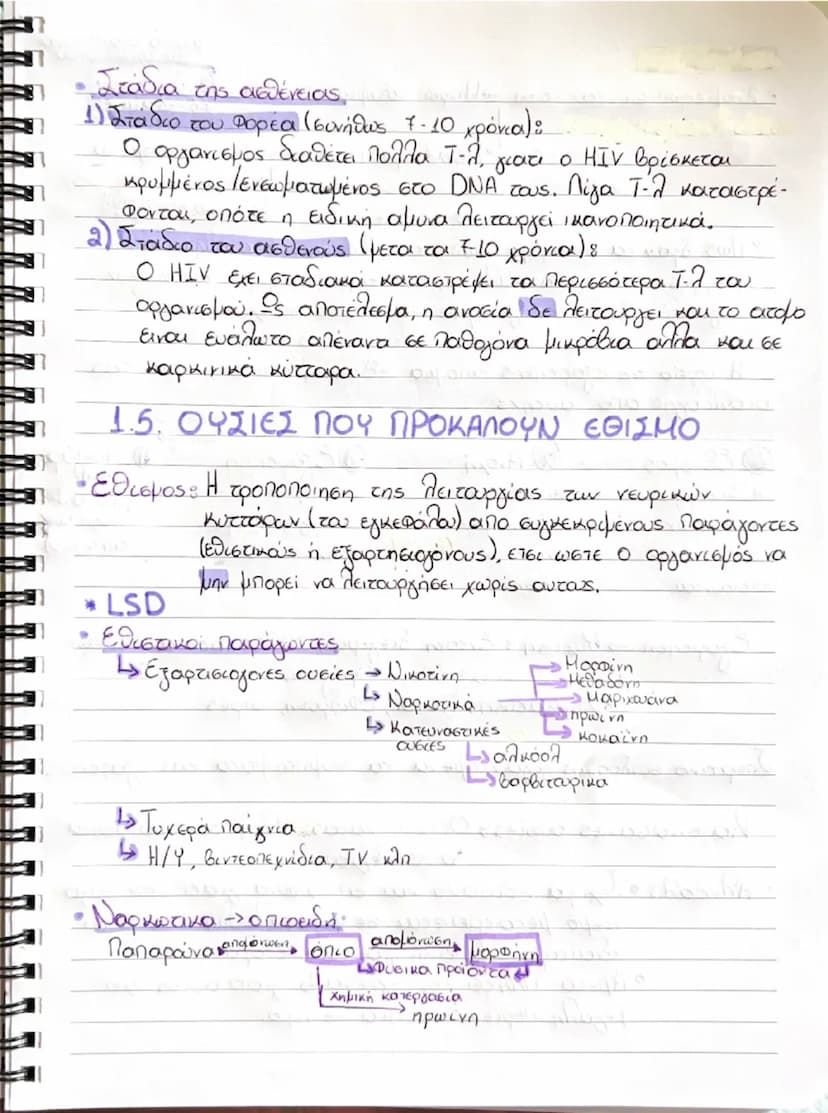 • Στάδια της ασθένειας
1) Στάδιο του Φορέα (συνήθως 7-10 χρόνια):
Ο οργανισμός διαθέτει πολλα Τ-λ, γιατι ο HIV βρίσκεται
κρυμμένος/ενσωματωμένος στο DNA τους. Λίγα Τ-λ καταστρέ-
φονται, οπότε η ειδική αμυνα λειτουργεί ικανοποιητικά.
2) Στάδιο του ασθενούς (μετα τα 7-10 χρόνια):
Ο HIV έχει σταδιακά καταστρέψει τα περισσότερα Τ-λ του
οργανισμού. Ως αποτέλεσμα, η ανοσία δε λειτουργει και το ατομο
ειναι ευάλωτο απέναντι σε παθογόνα μικρόβια αλλα και σε
καρκινικά κύτταρα.
1.5. ΟΥΣΙΕΣ ΠΟΥ ΠΡΟΚΑΛΟΥΝ ΕΘΙΣΜΟ
• Εθισμος: Η τροποποίηση της λειτουργίας των νευρικών
κυττάρων (του εγκεφάλου) απο συγκεκριμένους παράγοντες
(εθιστικούς ή εξαρτησιογόνους), ετσι ωστε ο οργανισμός να
μην μπορεί να λειτουργήσει χωρίς αυτους.
* LSD
• Εθιστικοί παράγοντες
↳ Εξαρτισιογονες ουσίες → Νικοτίνη
↳ Ναρκοτικά → Μορφίνη
Μεθαδόνη
Μαριχουάνα
ηρωίνη
κοκαΐνη
↳ Κατευναστικές ουσιες
↳ αλκοόλ
↳ βαρβιτουρικα
↳ Τυχερά παίχνια
↳ Η/Υ, βιντεοπεχνίδια, T.V. κλπ
• Ναρκοτικα → οπιοειδη:
Παπαρούνα απομόνωση → όπιο απομόνωση → μορφίνη
↳ Φυσικα προϊοντα ↵
χημική κατεργασία → ηρωίνη